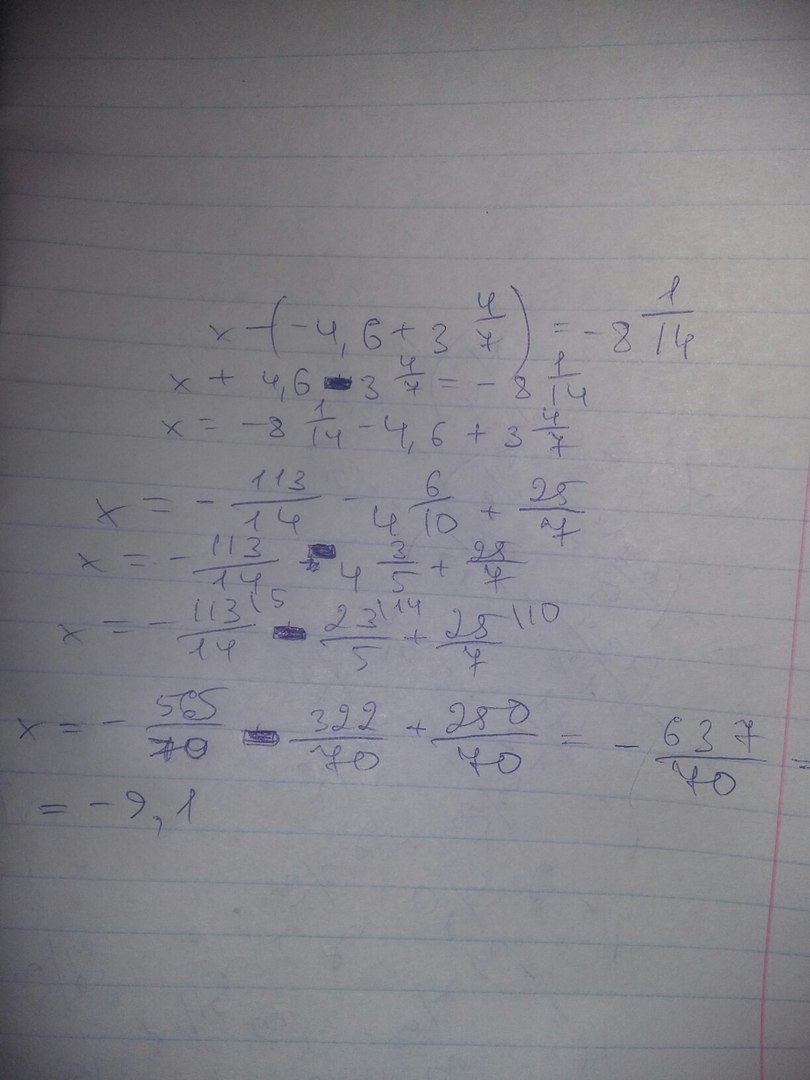 x - (-4,6 + 3 4/7) = -8 1/14
x + 4,6 - 3 4/7 = -8 1/14
x = -8 1/14 - 4,6 + 3 4/7
x = - 113/14 - 4 6/10 + 25/7
x = - 113/14 - 4 3/5 + 25/7
x = - 113\5/14 - 23\14/5 + 25\10/7
x = - 565/70 - 322/70 + 250/70 = - 637/70 =
= -9,1